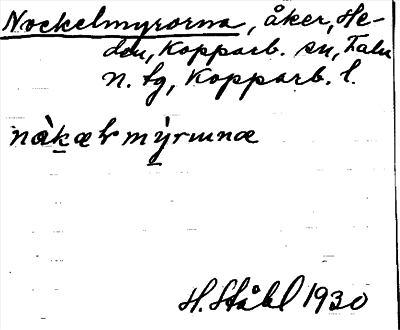 Nockelmyrorna, åker, He-
den, Kopparb. sn, Falu
N. tg, Kopparb. l.
nàkæl mýrunæ
H. Ståhl 1930